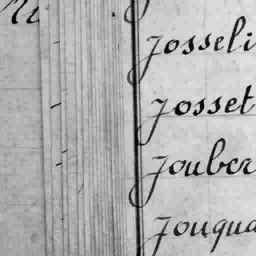 Josseli
Josset
Jouber
Jouqua